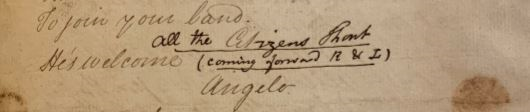 To join your band.
all the Citizens Shout
He's welcome (coming forward R & L)
Angelo